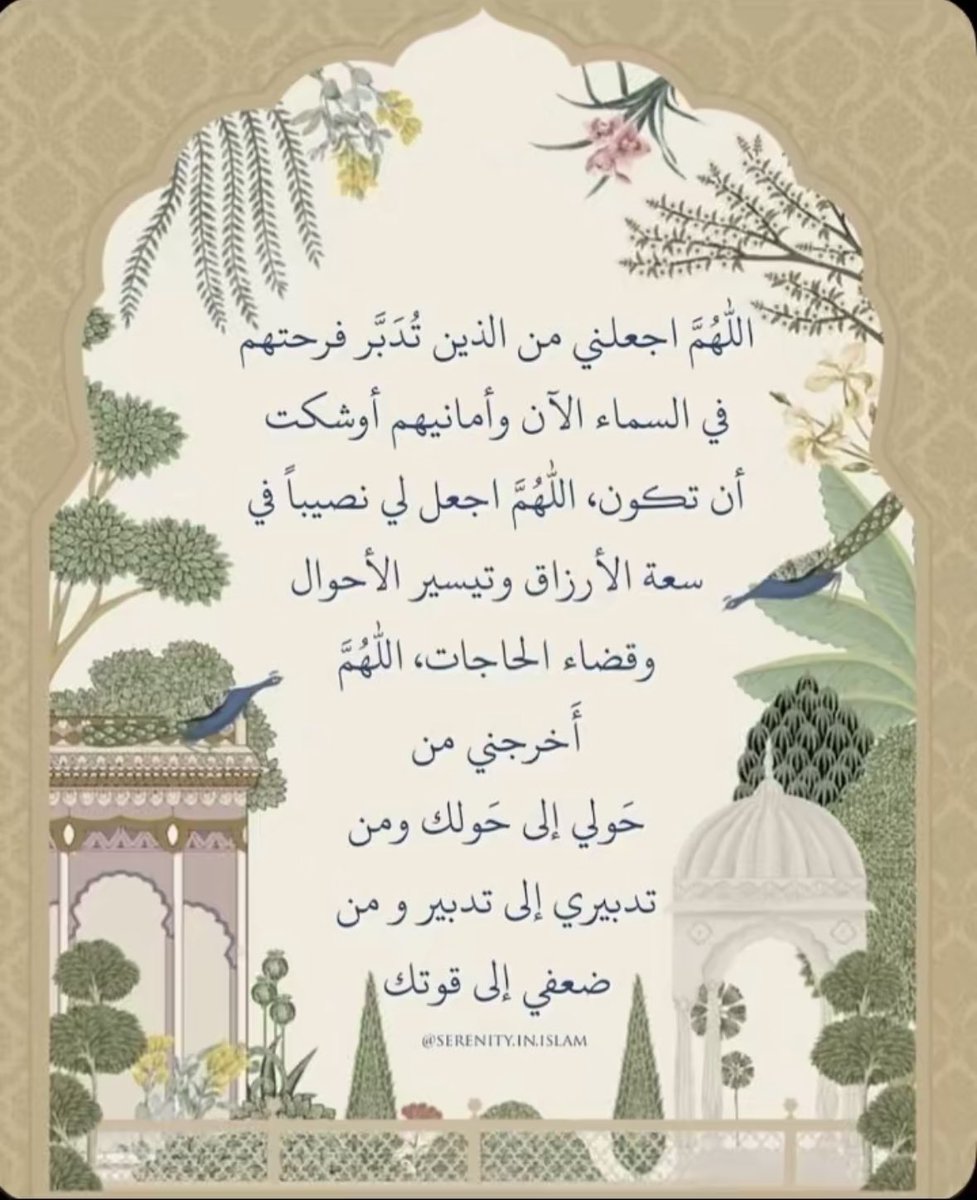 اللّٰهُمَّ اجعلني من الذين تُدَبَّر فرحتهم
في السماء الآن وأمانيهم أوشكت
أن تكون، اللّٰهُمَّ اجعل لي نصيباً في
سعة الأرزاق وتيسير الأحوال
وقضاء الحاجات، اللّٰهُمَّ
أَخرجني من
حَولي إلى حَولك ومن
تدبيري إلى تدبير و من
ضعفي إلى قوتك
@SERENITY.IN.ISLAM